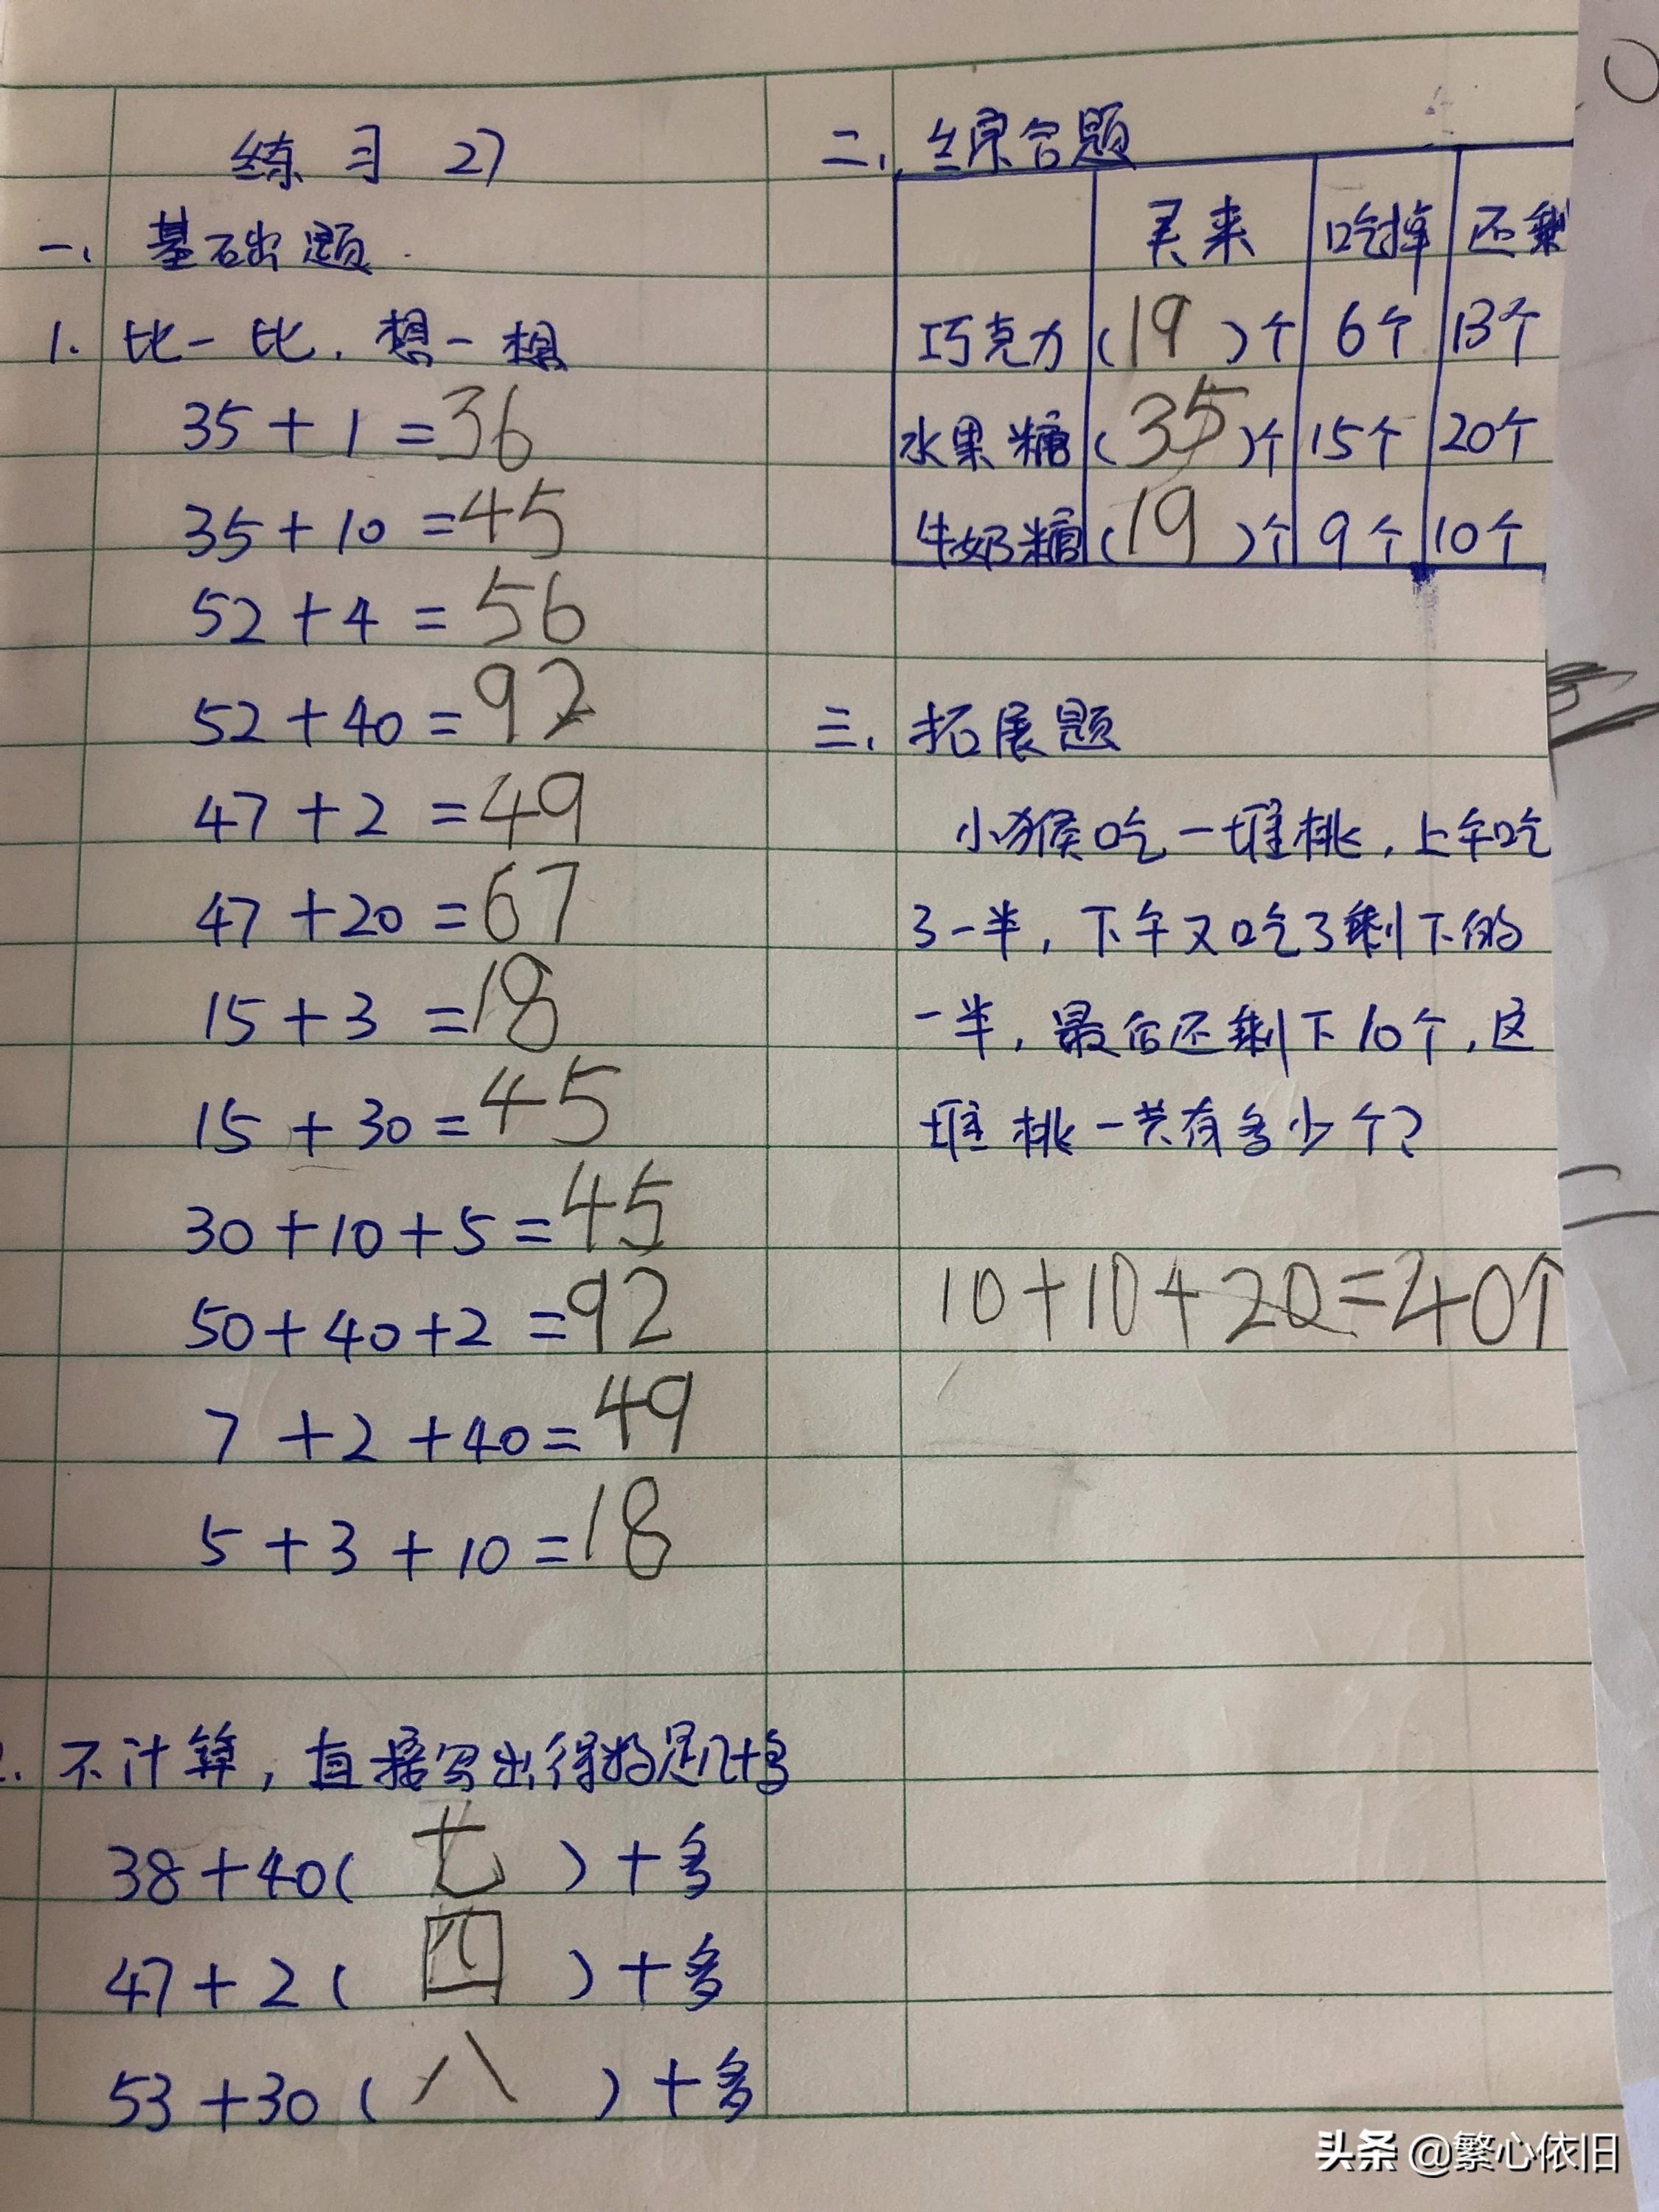 练习27
一、基础题
1. 比一比，想一想
35+1=36
35+10=45
52+4=56
52+40=92
47+2=49
47+20=67
15+3=18
15+30=45
30+10+5=45
50+40+2=92
7+2+40=49
5+3+10=18
2. 不计算，直接写出得数是几十多
38+40(七)十多
47+2(四)十多
53+30(八)十多
二、综合题
买来 吃掉 还剩
巧克力 (19)个 6个 13个
水果糖 (35)个 15个 20个
牛奶糖 (19)个 9个 10个
三、拓展题
小猴吃一堆桃，上午吃
了一半，下午又吃了剩下的
一半，最后还剩下10个，这
堆桃一共有多少个？
10+10+20=40个
头条 @繁心依旧